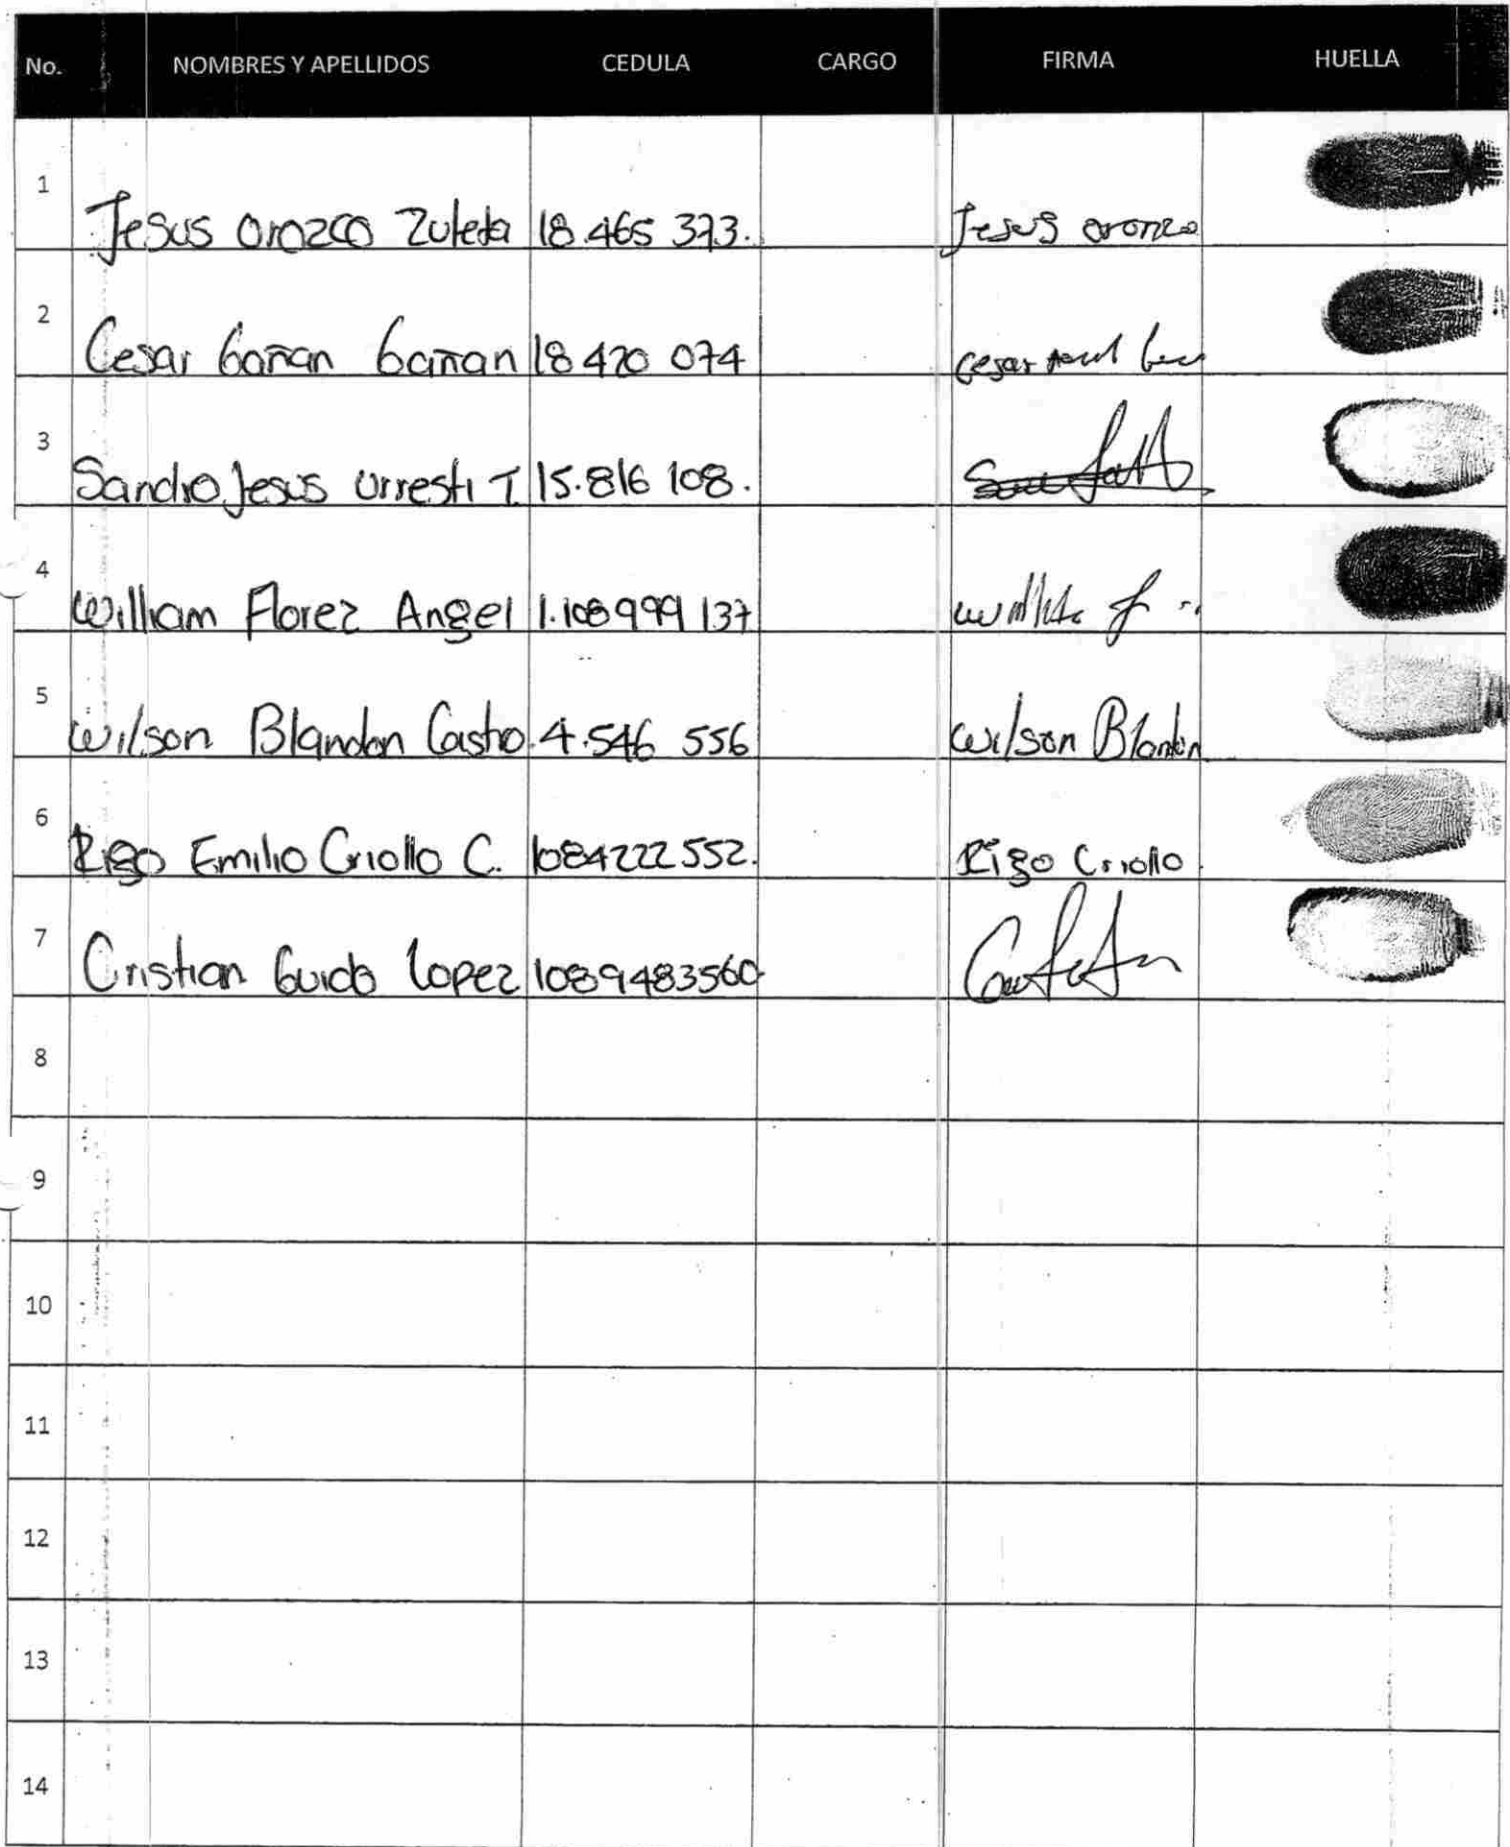 No. NOMBRES Y APELLIDOS CEDULA CARGO FIRMA HUELLA
1 Jesus Orozco Zuleta 18.465 373. Jesus orozco
2 Cesar Gañan Gañan 18 420 074 Cesar
3 Sandro Jesus Urresti T. 15.816 108.
4 William Florez Angel 1.108 999 137
5 Wilson Blandon Castro. 4.546 556 Wilson Blandon
6 Rigo Emilio Criollo C. 1084222552. Rigo Criollo.
7 Cristian Guido Lopez 1089483560.
8
9
10
11
12
13
14